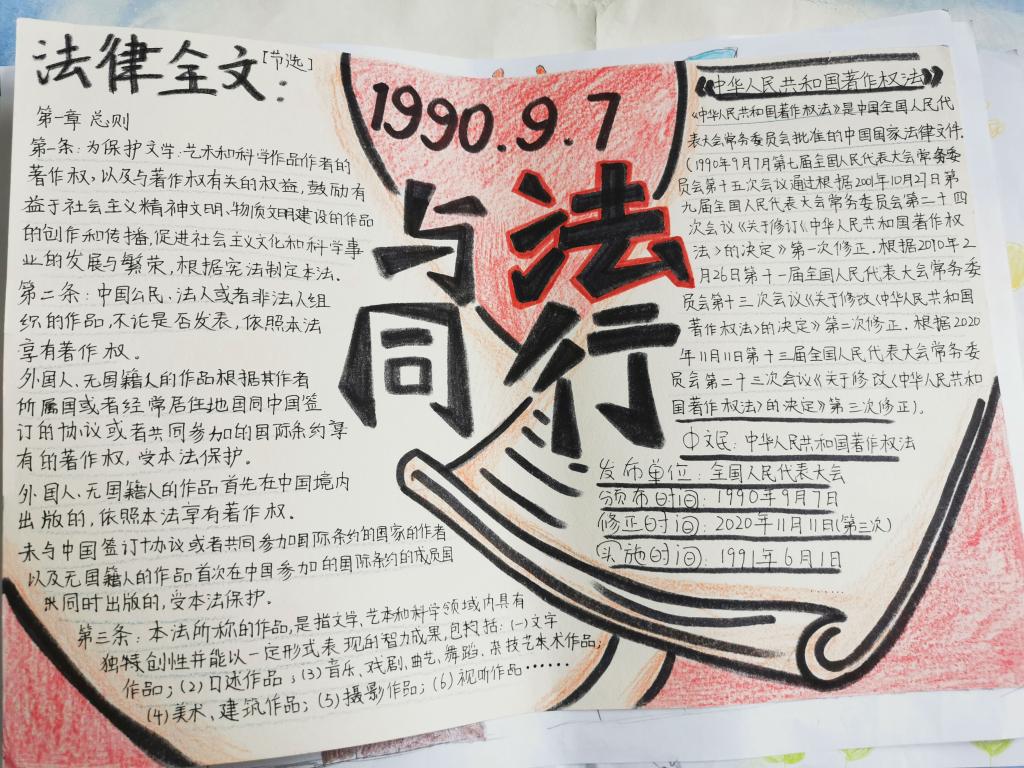 法律全文:[节选]
第一章 总则
第一条:为保护文学、艺术和科学作品作者的
著作权,以及与著作权有关的权益,鼓励有
益于社会主义精神文明、物质文明建设的作品
的创作和传播,促进社会主义文化和科学事
业的发展与繁荣,根据宪法制定本法。
第二条:中国公民、法人或者非法人组
织的作品,不论是否发表,依照本法
享有著作权。
外国人、无国籍人的作品根据其作者
所属国或者经常居住地国同中国签
订的协议或者共同参加的国际条约享
有的著作权,受本法保护。
外国人、无国籍人的作品首先在中国境内
出版的,依照本法享有著作权。
未与中国签订协议或者共同参加国际条约的国家的作者
以及无国籍人的作品首次在中国参加的国际条约的成员国
同时出版的,受本法保护。
第三条:本法所称的作品,是指文学、艺术和科学领域内具有
独特创性并能以一定形式表现的智力成果,包括:(一)文字
作品;(2)口述作品;(3)音乐、戏剧、曲艺、舞蹈、杂技艺术作品;
(4)美术、建筑作品;(5)摄影作品;(6)视听作品……
1990.9.7
与法
同行
《中华人民共和国著作权法》
《中华人民共和国著作权法》是中国全国人民代
表大会常务委员会批准的中国国家法律文件.
(1990年9月7月第七届全国人民代表大会常务委
员会第十五次会议通过根据2001年10月27日第
九届全国人民代表大会常务委员会第二十四
次会议《关于修订〈中华人民共和国著作权
法〉的决定》第一次修正.根据2010年2
月26日第十一届全国人民代表大会常务委
员会第十三次会议《关于修改〈中华人民共和国
著作权法〉的决定》第二次修正.根据2020
年11月11日第十三届全国人民代表大会常务委
员会第二十三次会议《关于修改〈中华人民共和
国著作权法〉的决定》第三次修正)。
中文民:中华人民共和国著作权法
发布单位:全国人民代表大会
颁布时间:1990年9月7日
修正时间:2020年11月11日(第三次)
实施时间:1991年6月1日